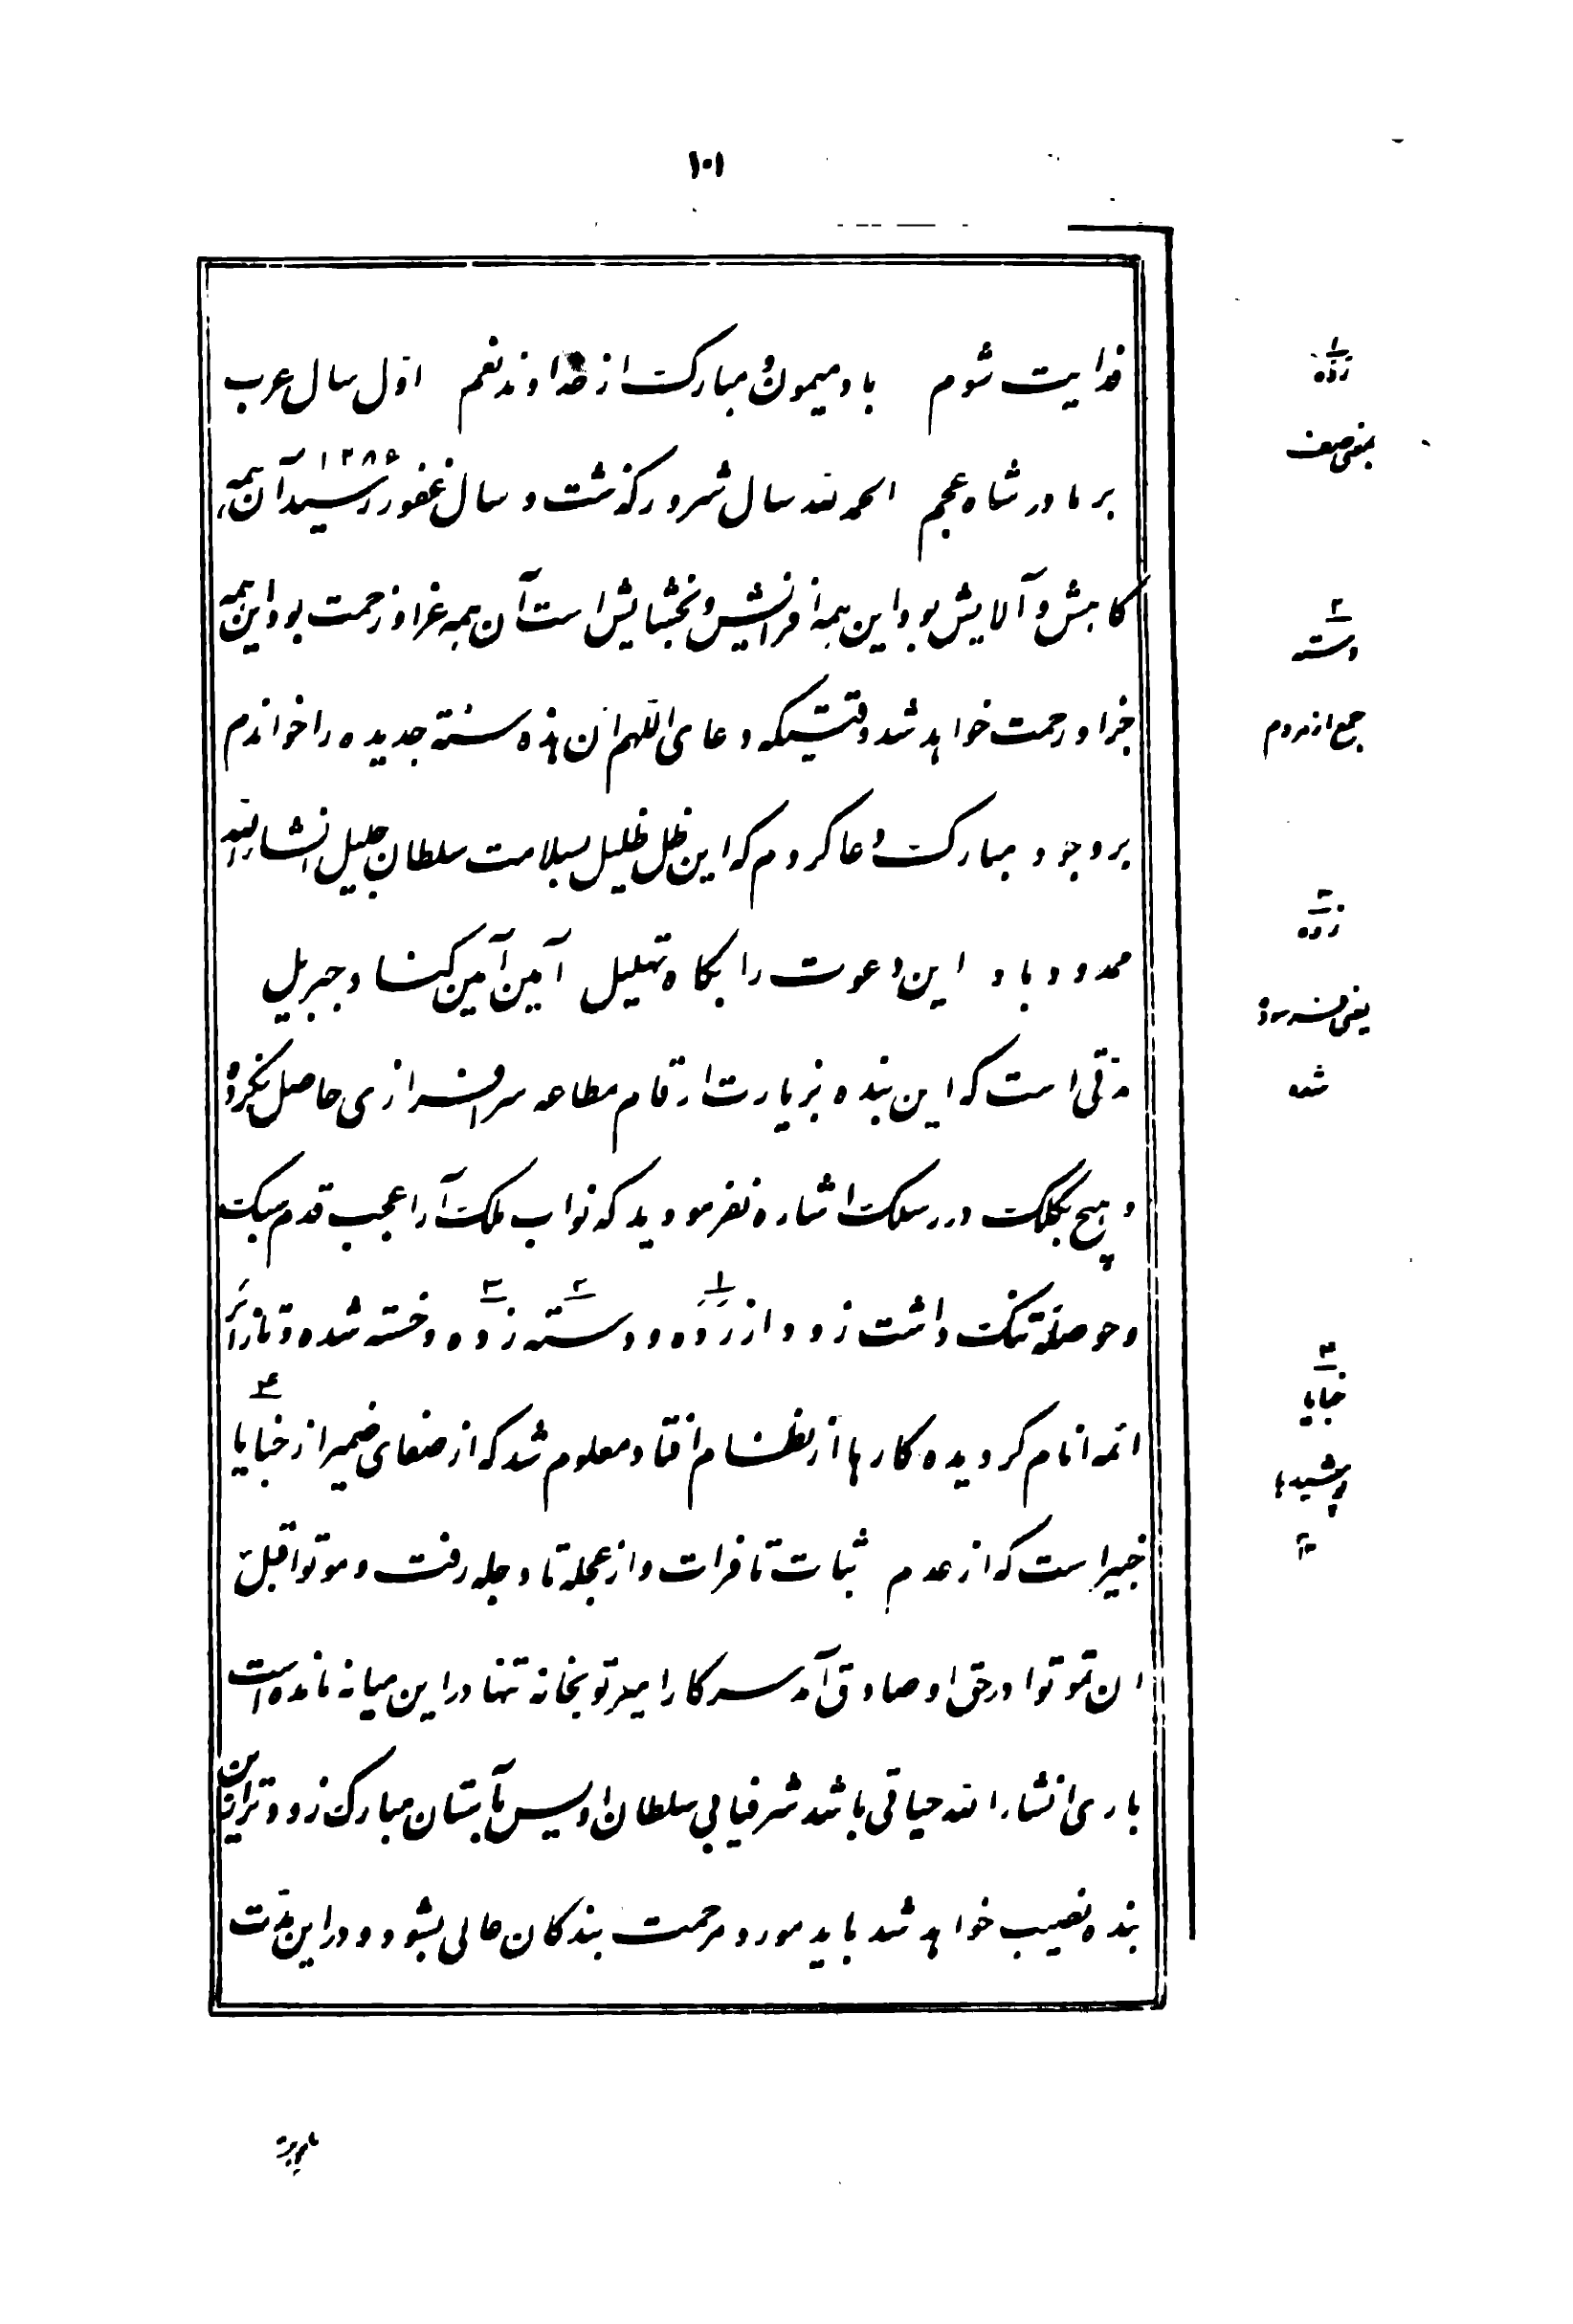 ۱۰۱
فدایت شوم باد میمون و مبارکت از خداوند نعم اوّل سال عرب
بر مادر شاه عجم الحمد لله سال شرور گذشت و سال غفور رسید آن همه
۱۲۸۶
کاهش و آلایش بود این همه افزایش و بخشایش است آن همه عزا و زحمت بود این همه
جزا و رحمت خواهد شد وقتیکه دعای اللهم ان هذه سنة جدیده را خواندم
بر وجود مبارکت دعا کردم که این ظل ظلیل بسلامت سلطان جلیل انشاءالله
ممدود باد این دعوت را بگاه تهلیل آمین آمین کناد جبریل
مدّتی است که این بنده بزیارت ارقام مطاعه سرافرازی حاصل نکرده
و هیچ بکلک درر سلک اشاره نفرمودید که نواب ملک آرا عجب قدم سبک
و حوصله تنگ داشت زود از رده و دسته زده و خسته شده و تازیر
ائمه انام گردیده کارها از نظام افتاد معلوم شد که از صفای ضمیر از خبایا
خبیر است که از عدم ثبات تا فرات و از عجله تا دجله رفت و موتوا قبل
ان تموتوا در حق او صادق آمد سرکار امیر توپخانه تنها در این میانه مانده است
باری انشاء الله حیاتی باشد شرفیابی سلطان اویس بآستان مبارک زودتر از این
بنده نصیب خواهد شد باید مورد مرحمت بندگان عالی بشود و در این مدّت
۱
رده
بمعنی صف
۲
دسته
جمع از مردم
۳
زده
یعنی فرسوده
شده
۴
خبایا
پوشیدها